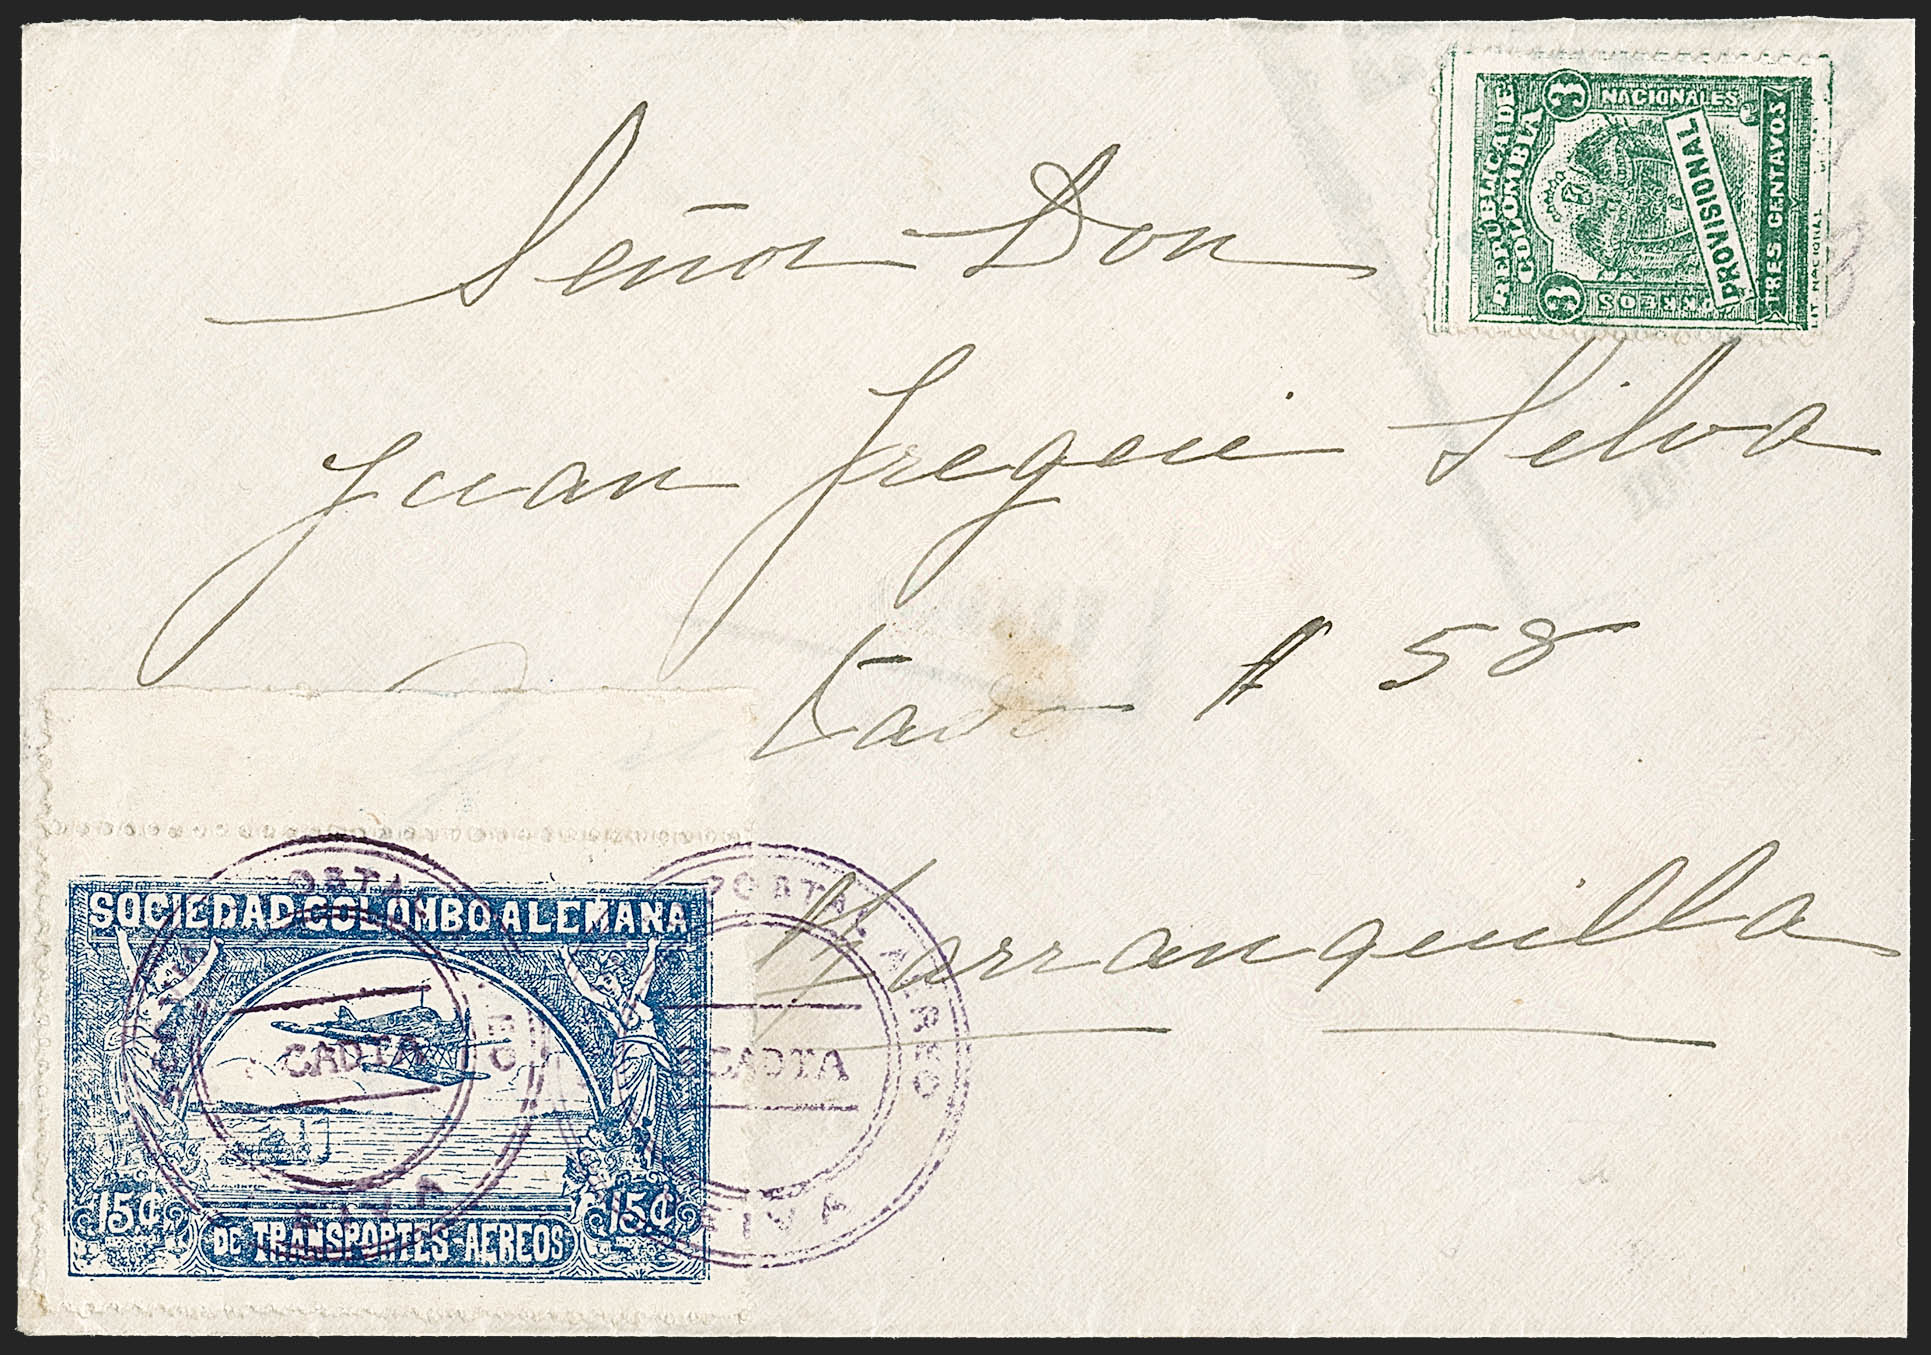 Señor Don
Juan Fregen Silva
# 58
Barranquilla
REPUBLICA DE
COLOMBIA
3 NACIONALES
3 CORREOS
PROVISIONAL
TRES CENTAVOS
LIT. NACIONAL
SOCIEDAD COLOMBO ALEMANA
15¢ 15¢
DE TRANSPORTES AEREOS
POSTAL AEREO
SCADTA
NEIVA
POSTAL AEREO
SCADTA
NEIVA